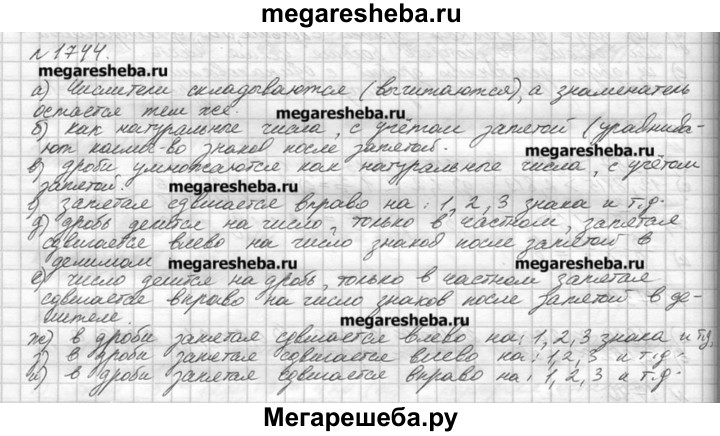 megaresheba.ru
N 1744.
megaresheba.ru
а) Числители складываются (вычитаются), а знаменатель
остается тем же. megaresheba.ru
б) как натуральные числа, с учётом запятой (уравнива-
ют колич-во знаков после запятой. megaresheba.ru
в) дроби умножаются как натуральные числа, с учётом
запятой. megaresheba.ru
г) запятая сдвигается вправо на: 1, 2, 3 знака и т.д.
д) дробь делится на число, только в частном, запятая
сдвигается влево на число знаков после запятой в
делимом megaresheba.ru megaresheba.ru
е) число делится на дробь, только в частном запятая
сдвигается вправо на число знаков после запятой в де-
лителе. megaresheba.ru
ж) в дроби запятая сдвигается влево на: 1, 2, 3 знака и т.д.
з) в дроби запятая сдвигается влево на: 1, 2, 3 и т.д.
и) в дроби запятая сдвигается вправо на: 1, 2, 3 и т.д.
Мегарешеба.ру